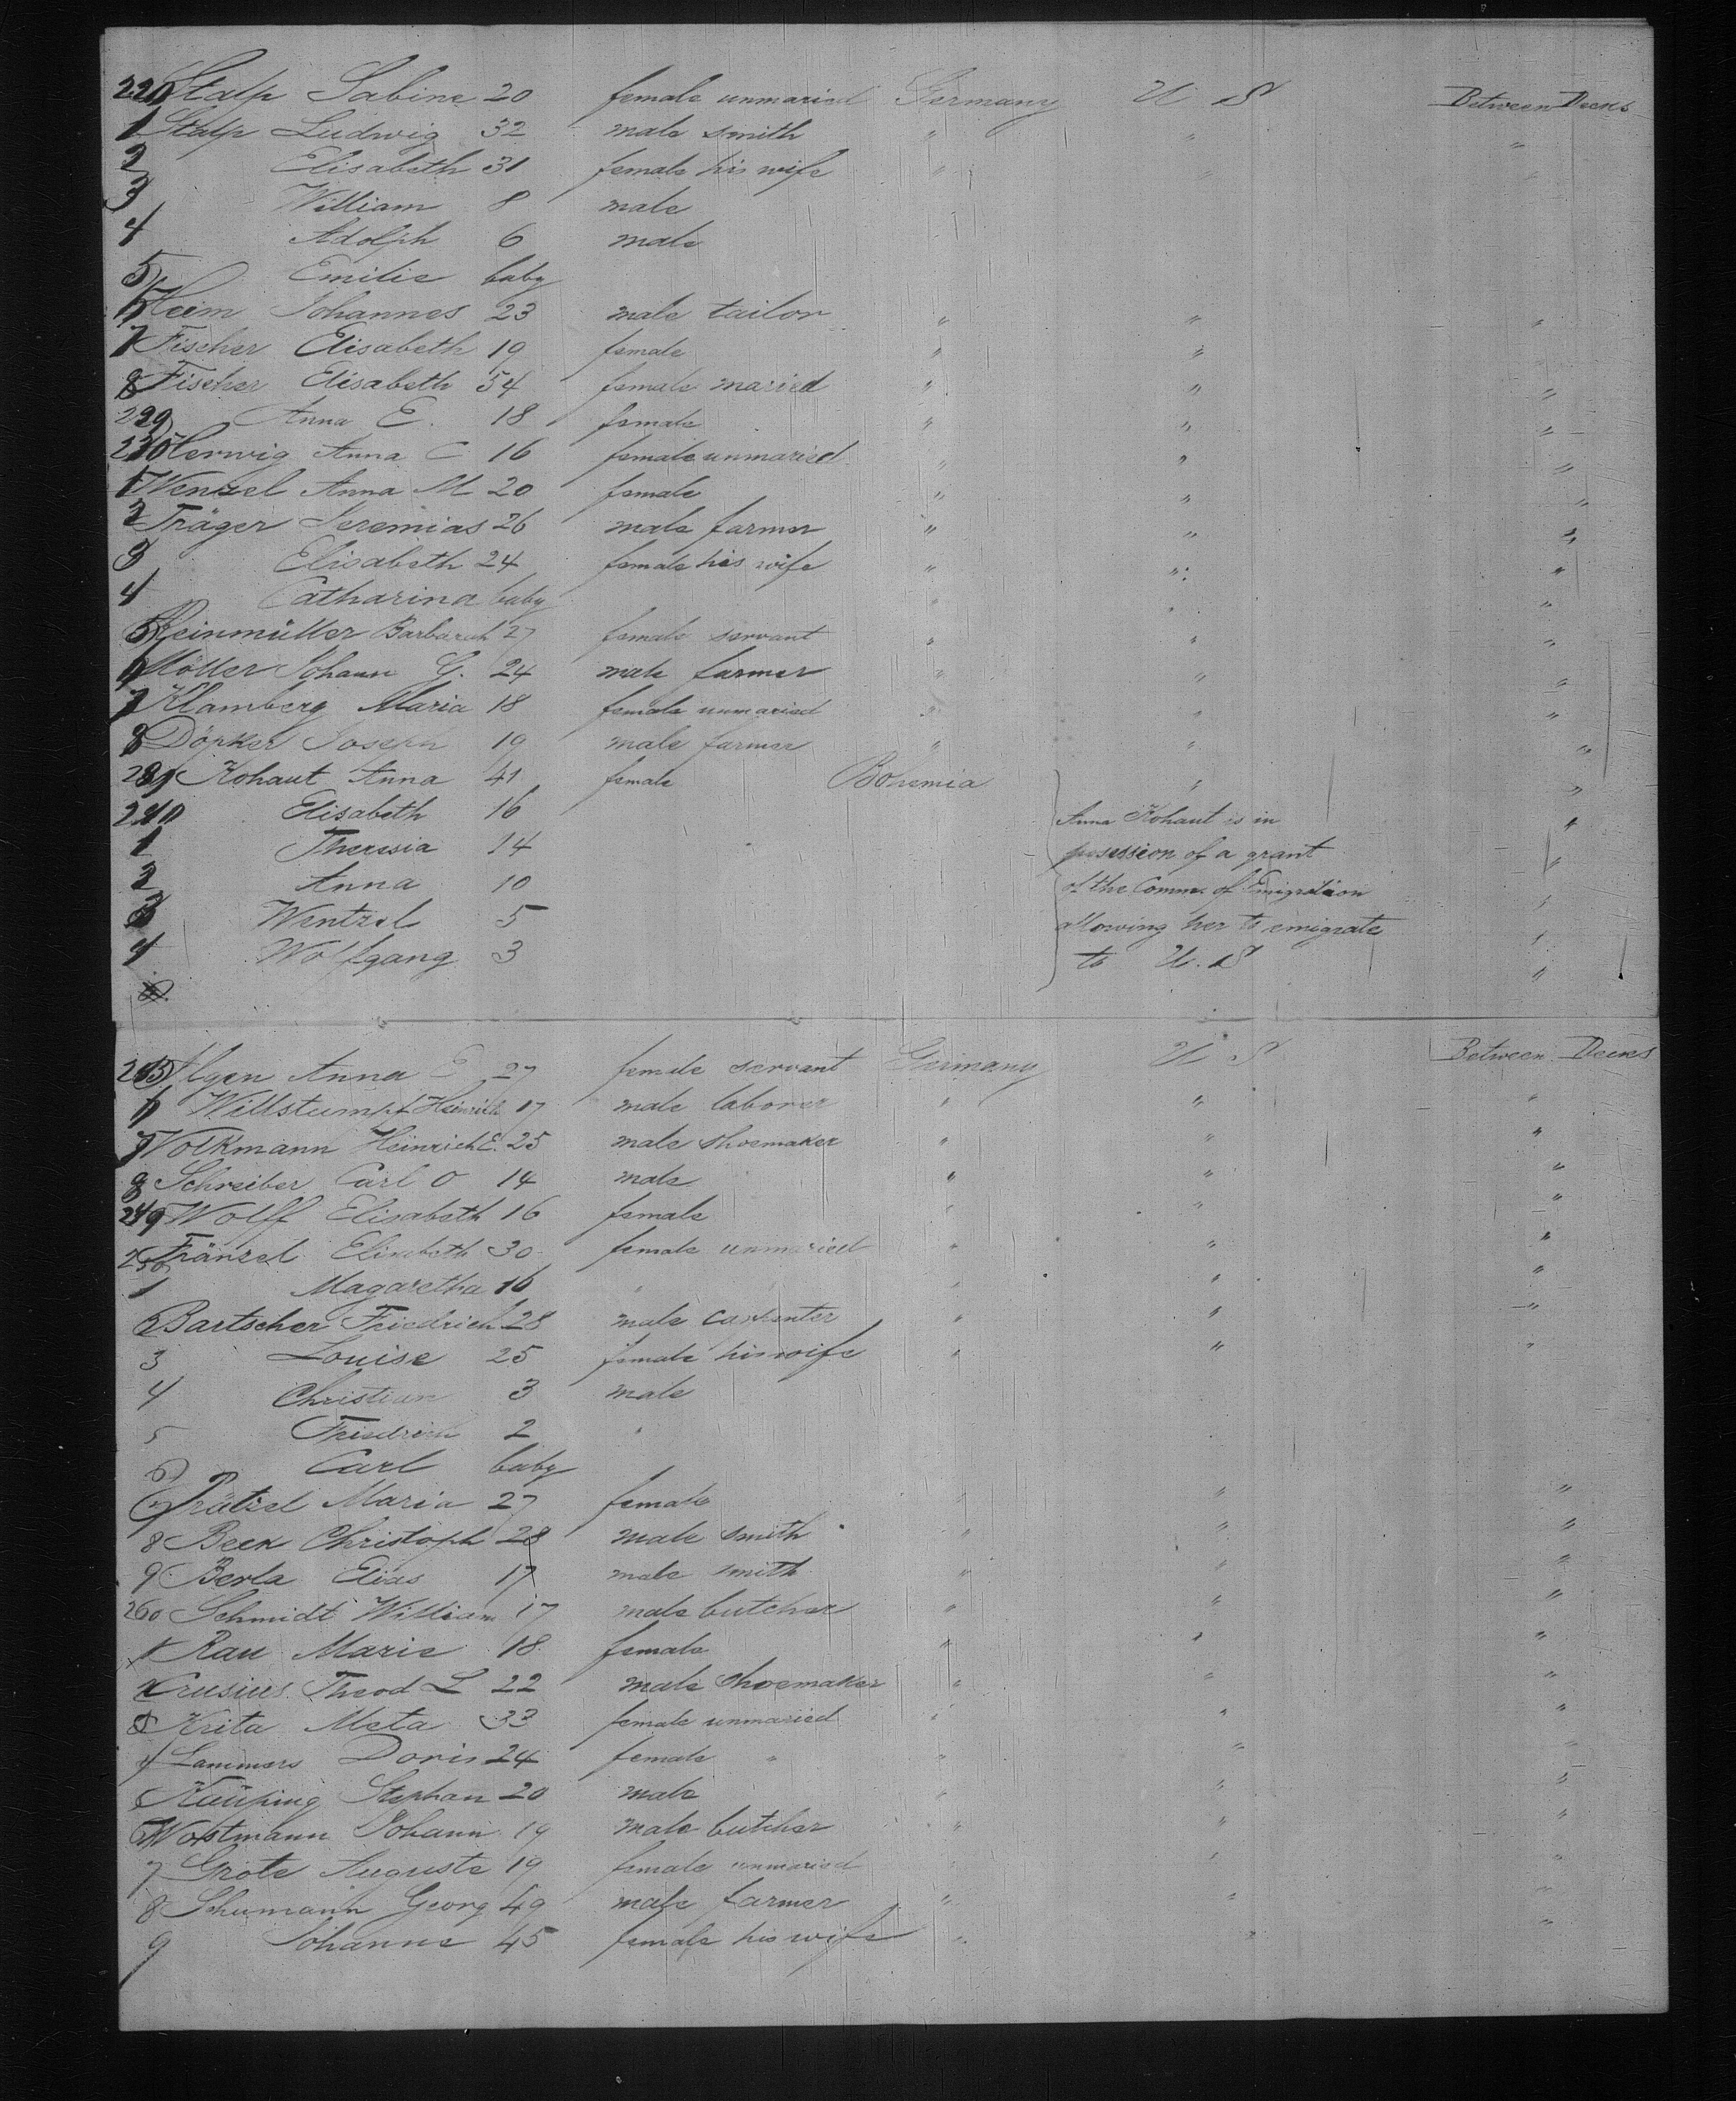 220 Stalp Sabine 20 female unmaried Germany U S Between Decks
1 Stalp Ludwig 32 male smith " " "
2 Elisabeth 31 female his wife " " "
3 William 8 male
4 Adolph 6 male
5 Emilie baby
6 Heim Johannes 23 male tailor " " "
7 Fischer Elisabeth 19 female " "
8 Fischer Elisabeth 54 female maried " " "
229 Anna E. 18 female " " "
230 Herwig Anna C 16 female unmaried " " "
1 Wenzel Anna M 20 female " " "
2 Träger Jeremias 26 male farmer " " "
3 Elisabeth 24 female his wife " " "
4 Catharina baby " " "
5 Reinmüller Barbarah 27 female servant " " "
6 Möller Johann G. 24 male farmer " " "
7 Klamberg Maria 18 female unmaried " " "
8 Döpker Joseph 19 male farmer " " "
239 Kohaut Anna 41 female Bohemia " "
240 Elisabeth 16 Anna Kohaut is in "
1 Theresia 14 posession of a grant "
2 Anna 10 of the Comm. of Emigration
3 Wentzel 5 allowing her to emigrate "
4 Wolfgang 3 to U. S "
245 Ilgen Anna E 27 female servant Germany U S Between Decks
6 Willstumpf Heinrich 17 male laborer " " "
7 Volkmann Heinrich E. 25 male shoemaker " " "
8 Schreiber Carl O 14 male " " "
249 Wolff Elisabeth 16 female " " "
250 Fränzel Elisabeth 30 female unmaried " " "
1 Magaretha 16 " " " "
2 Bartscher Friedrich 28 male carpenter " " "
3 Louise 25 female his wife " " "
4 Christian 3 male
5 Friedrich 2 "
6 Carl baby
7 Prätzel Maria 27 female " " "
8 Beck Christoph 28 male smith " " "
9 Berla Elias 17 male smith " " "
260 Schmidt William 17 male butcher " " "
1 Rau Marie 18 female " " "
2 Crusius Theod L 22 male shoemaker " " "
3 Krita Meta 33 female unmaried " " "
4 Lammers Doris 24 female " " " "
5 Küüping Stephan 20 male " " "
6 Wostmann Johann 19 male butcher " " "
7 Grote Auguste 19 female unmaried " " "
8 Schumann Georg 49 male farmer " " "
9 Johanne 45 female his wife " " "